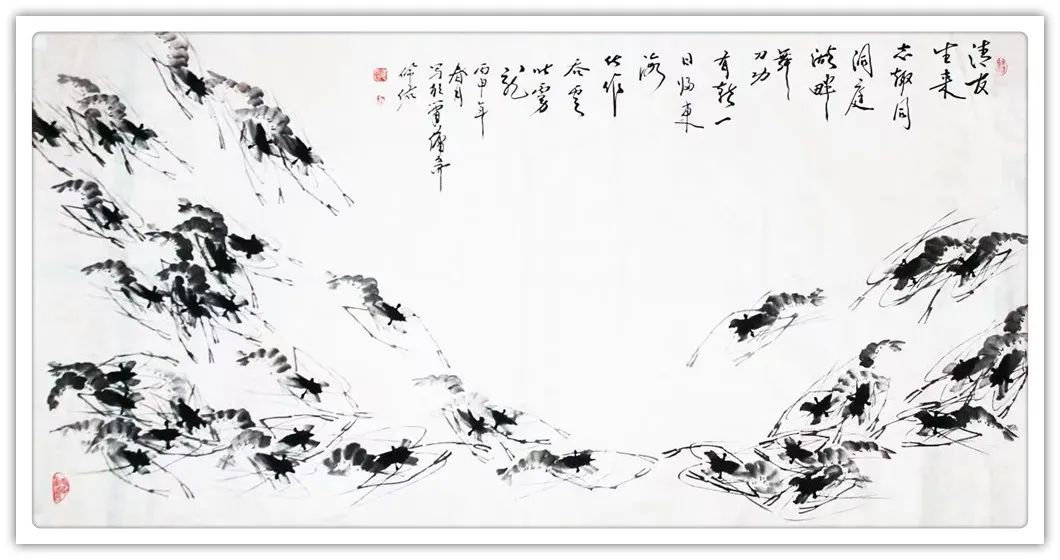 清友
生来
志趣同
洞庭
湖畔
舞
刀功
有朝一
日归东
海
化作
吞云
吐雾
龙
丙申年
春月
写于